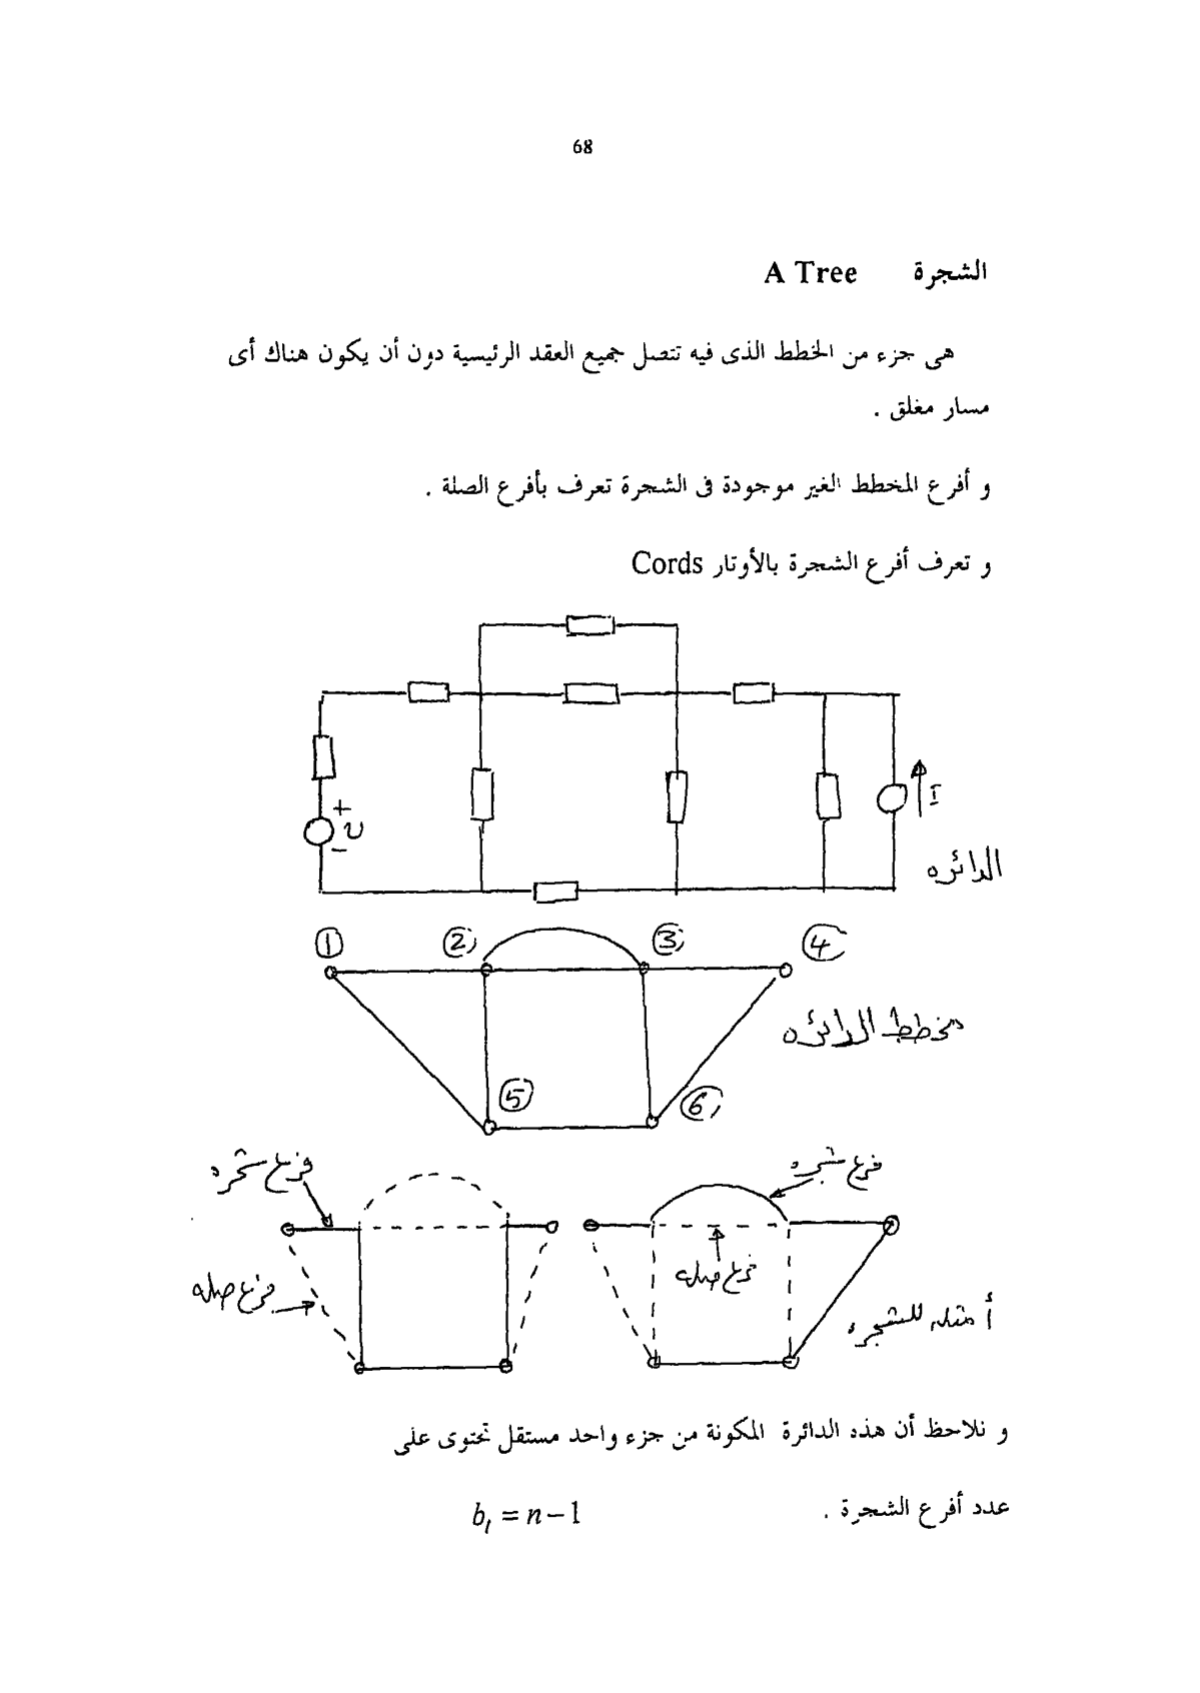 68
الشجرة A Tree
هى جزء من الخطط الذى فيه تتصل جميع العقد الرئيسية دون أن يكون هناك أى
مسار مغلق .
و أفرع المخطط الغير موجودة فى الشجرة تعرف بأفرع الصلة .
و تعرف أفرع الشجرة بالأوتار Cords
+
v
-
I
الدائره
1 2 3 4
مخطط الدائره
5 6
فرع شجره
فرع شجره
فرع صله
فرع صله
أمثله للشجره
و نلاحظ أن هذه الدائرة المكونة من جزء واحد مستقل تحتوى على
عدد أفرع الشجرة . b_t = n-1